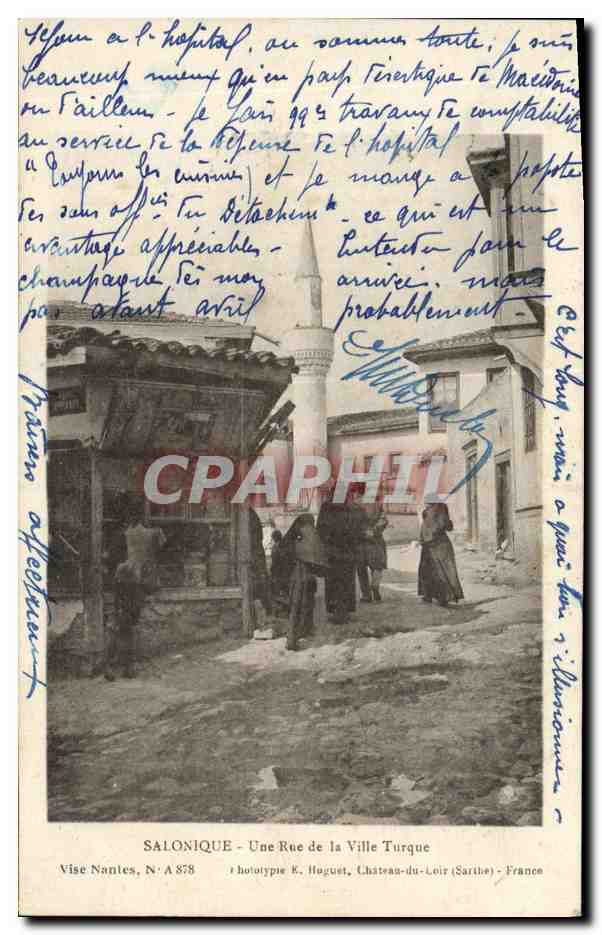 séjour à l'hôpital, où sommes toute, je suis
beaucoup mieux qu'en pays désertique de Macédoine
ou d'ailleurs - je fais qqs travaux de comptabilité
au service de la Dépense de l'hôpital
"Toujours les cuisines) et je mange à popote
des sous offers du Détachemt - ce qui est un
avantage appréciable - Entendu pour le
champagne dès mon arrivée, mais
pas avant avril probablement
C'est long, mais à quoi bon s'illusionner -
Baisers affectueux
CPARAMA
CPAPHIL
SALONIQUE - Une Rue de la Ville Turque
Visé Nantes, N° A 878 Phototypie K. Huguet, Château-du-Loir (Sarthe) - France